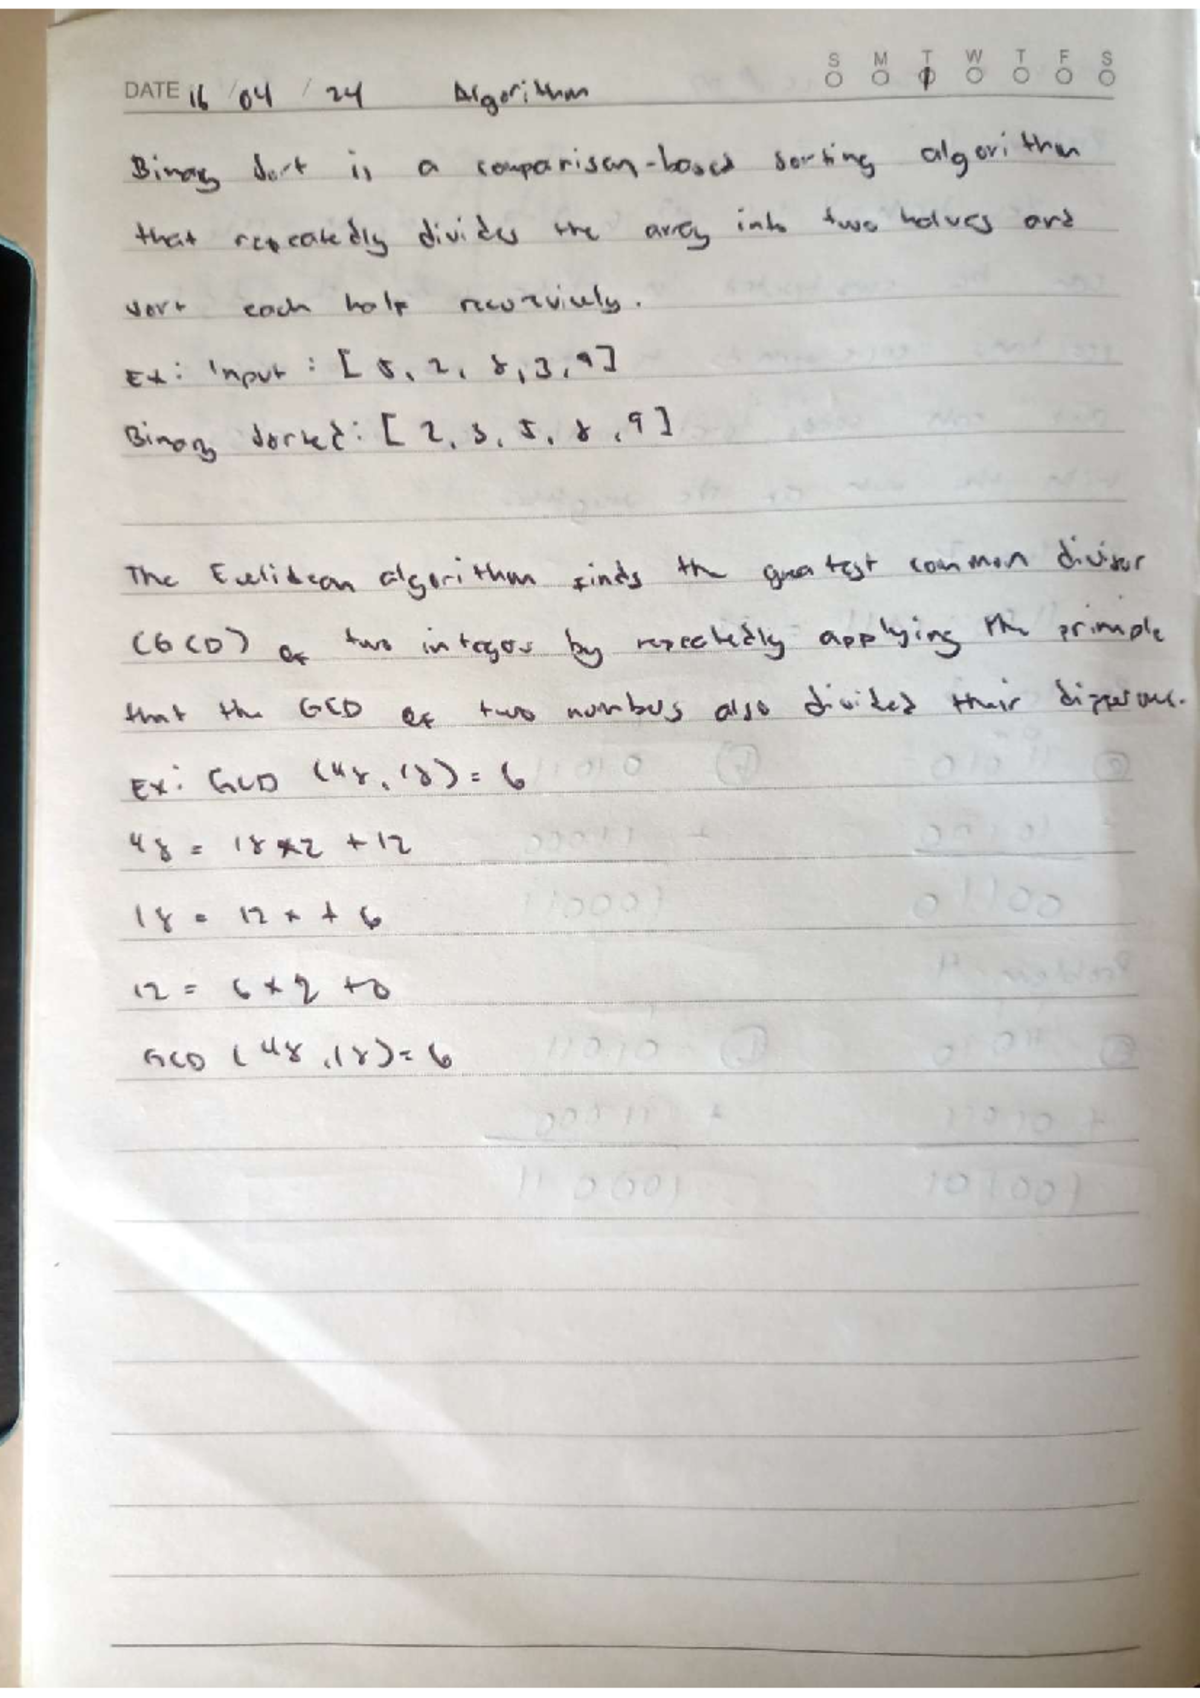 S M T W T F S
DATE 16 / 04 / 24 Algorithm
Binary sort is a comparison-based sorting algorithm
that repeatedly divides the array into two halves and
sort each half recursively.
Ex: Input : [ 5, 2, 8, 3, 9]
Binary sorted: [ 2, 3, 5, 8, 9 ]
The Euclidean algorithm finds the greatest common divisor
(GCD) of two integers by repeatedly applying the principle
that the GCD of two numbers also divided their difference.
Ex: GCD (48, 18) = 6
48 = 18 * 2 + 12
18 = 12 * + 6
12 = 6 * 2 + 0
GCD (48, 18) = 6